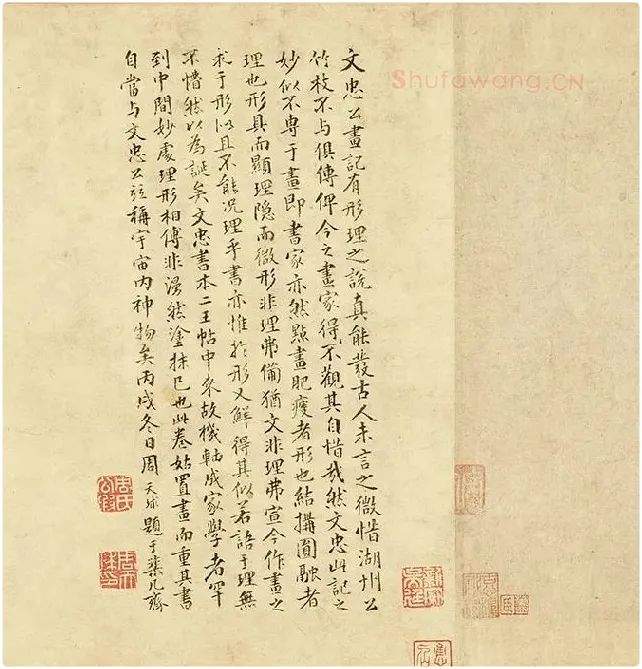 文忠公畫記有形理之說真能發古人未言之微惜湖州公
竹枝不与俱傳俾今之畫家得不觀其自惜哉然文忠此記之
妙似不專于畫即書家亦然點畫肥瘦者形也結搆圓融者
理也形具而顯理隐而微形非理弗備猶文非理弗宣今作畫之
求于形似且不能况理乎書亦惟於形又鮮得其似若語于理無
不惜然以為誕矣文忠書本二王帖中來故機軸成家學者罕
到中間妙處理形相傳非漫然塗抹已也此卷姑置畫而重其書
自當与文忠公竝稱宇宙内神物矣丙戌冬日周天球題于棐几齋
周氏公瑕
Shufawang.CN